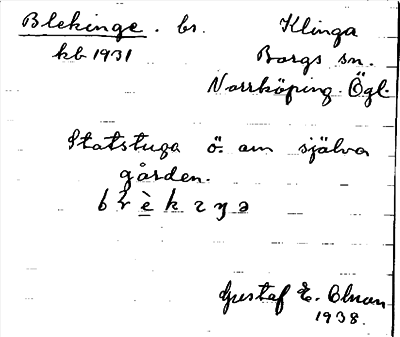 Blekinge. br. Klinga
kb 1931 Borgs sn.
Norrköping Ögl.
Statstuga ö. om själva
gården.
Gustaf E.
1938.